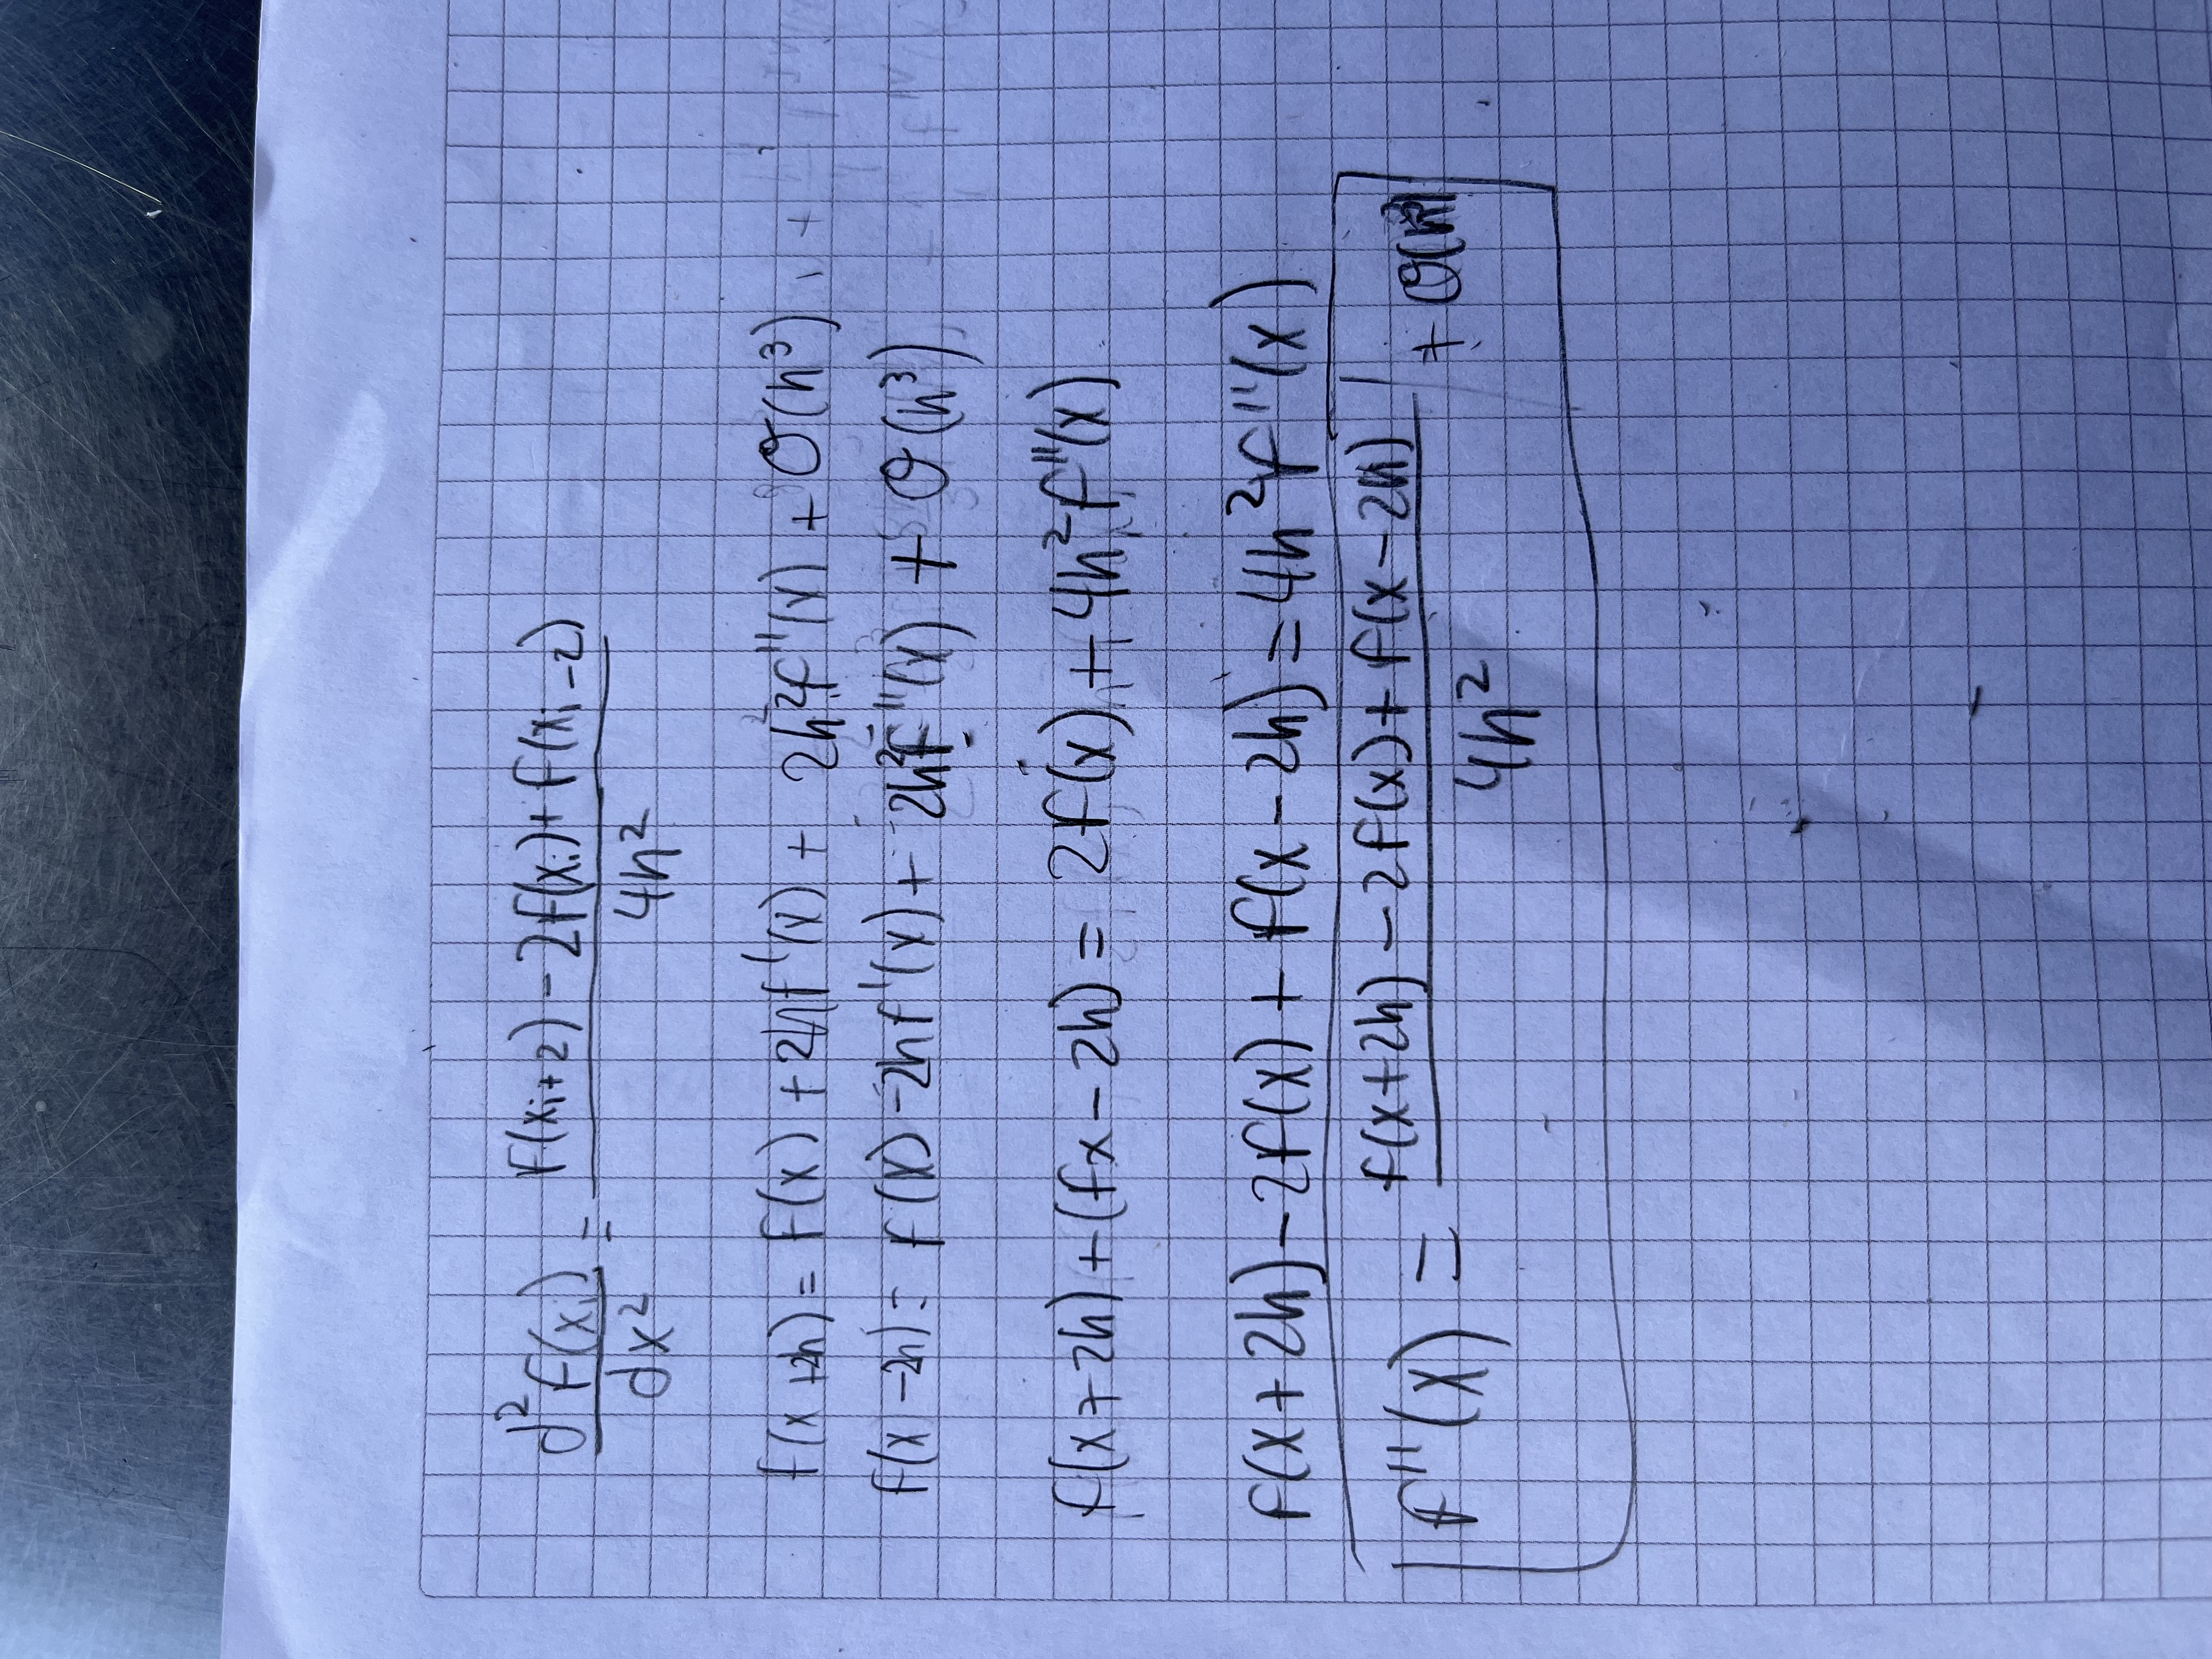 d²f(xᵢ)/dx² = (f(xᵢ+2) - 2f(xᵢ) + f(xᵢ-2))/4h²
f(x+2h) = f(x) + 2hf'(x) + 2h²f''(x) + O(h³)
f(x-2h) = f(x) - 2hf'(x) + 2h²f''(x) + O(h³)
f(x+2h) + (fx-2h) = 2f(x) + 4h²f''(x)
f(x+2h) - 2f(x) + f(x-2h) = 4h²f''(x)
f''(x) = (f(x+2h) - 2f(x) + f(x-2h))/4h² +